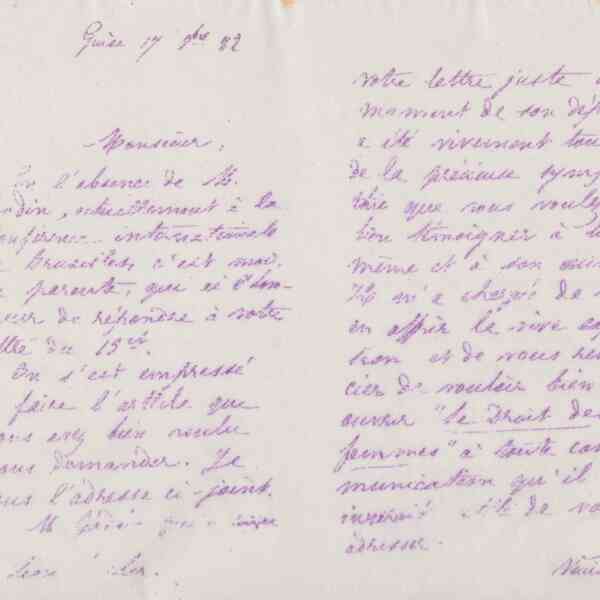 Guise 17 9bre 82
Monsieur,
En l'absence de M.
odin, actuellement à la
onférence internationale
Bruxelles, c'est moi,
parente, qui ai l'hon-
neur de répondre à votre
ttre du 15 ct.
On s'est empressé
faire l'article que
ous avez bien voulu
ous demander. Je
ous l'adresse ci-joint.
M.
votre lettre juste
moment de son dép
a été vivement tou
de la précieuse symp
thie que vous voulez
bien témoigner à lui
même et à son
m'a chargée de
en offrir la vive exp
sion et de vous remer
cier de vouloir bien
ouvrir "Le Droit des
femmes" à toute com
munication qu'il
de vous
adresser.
Veui